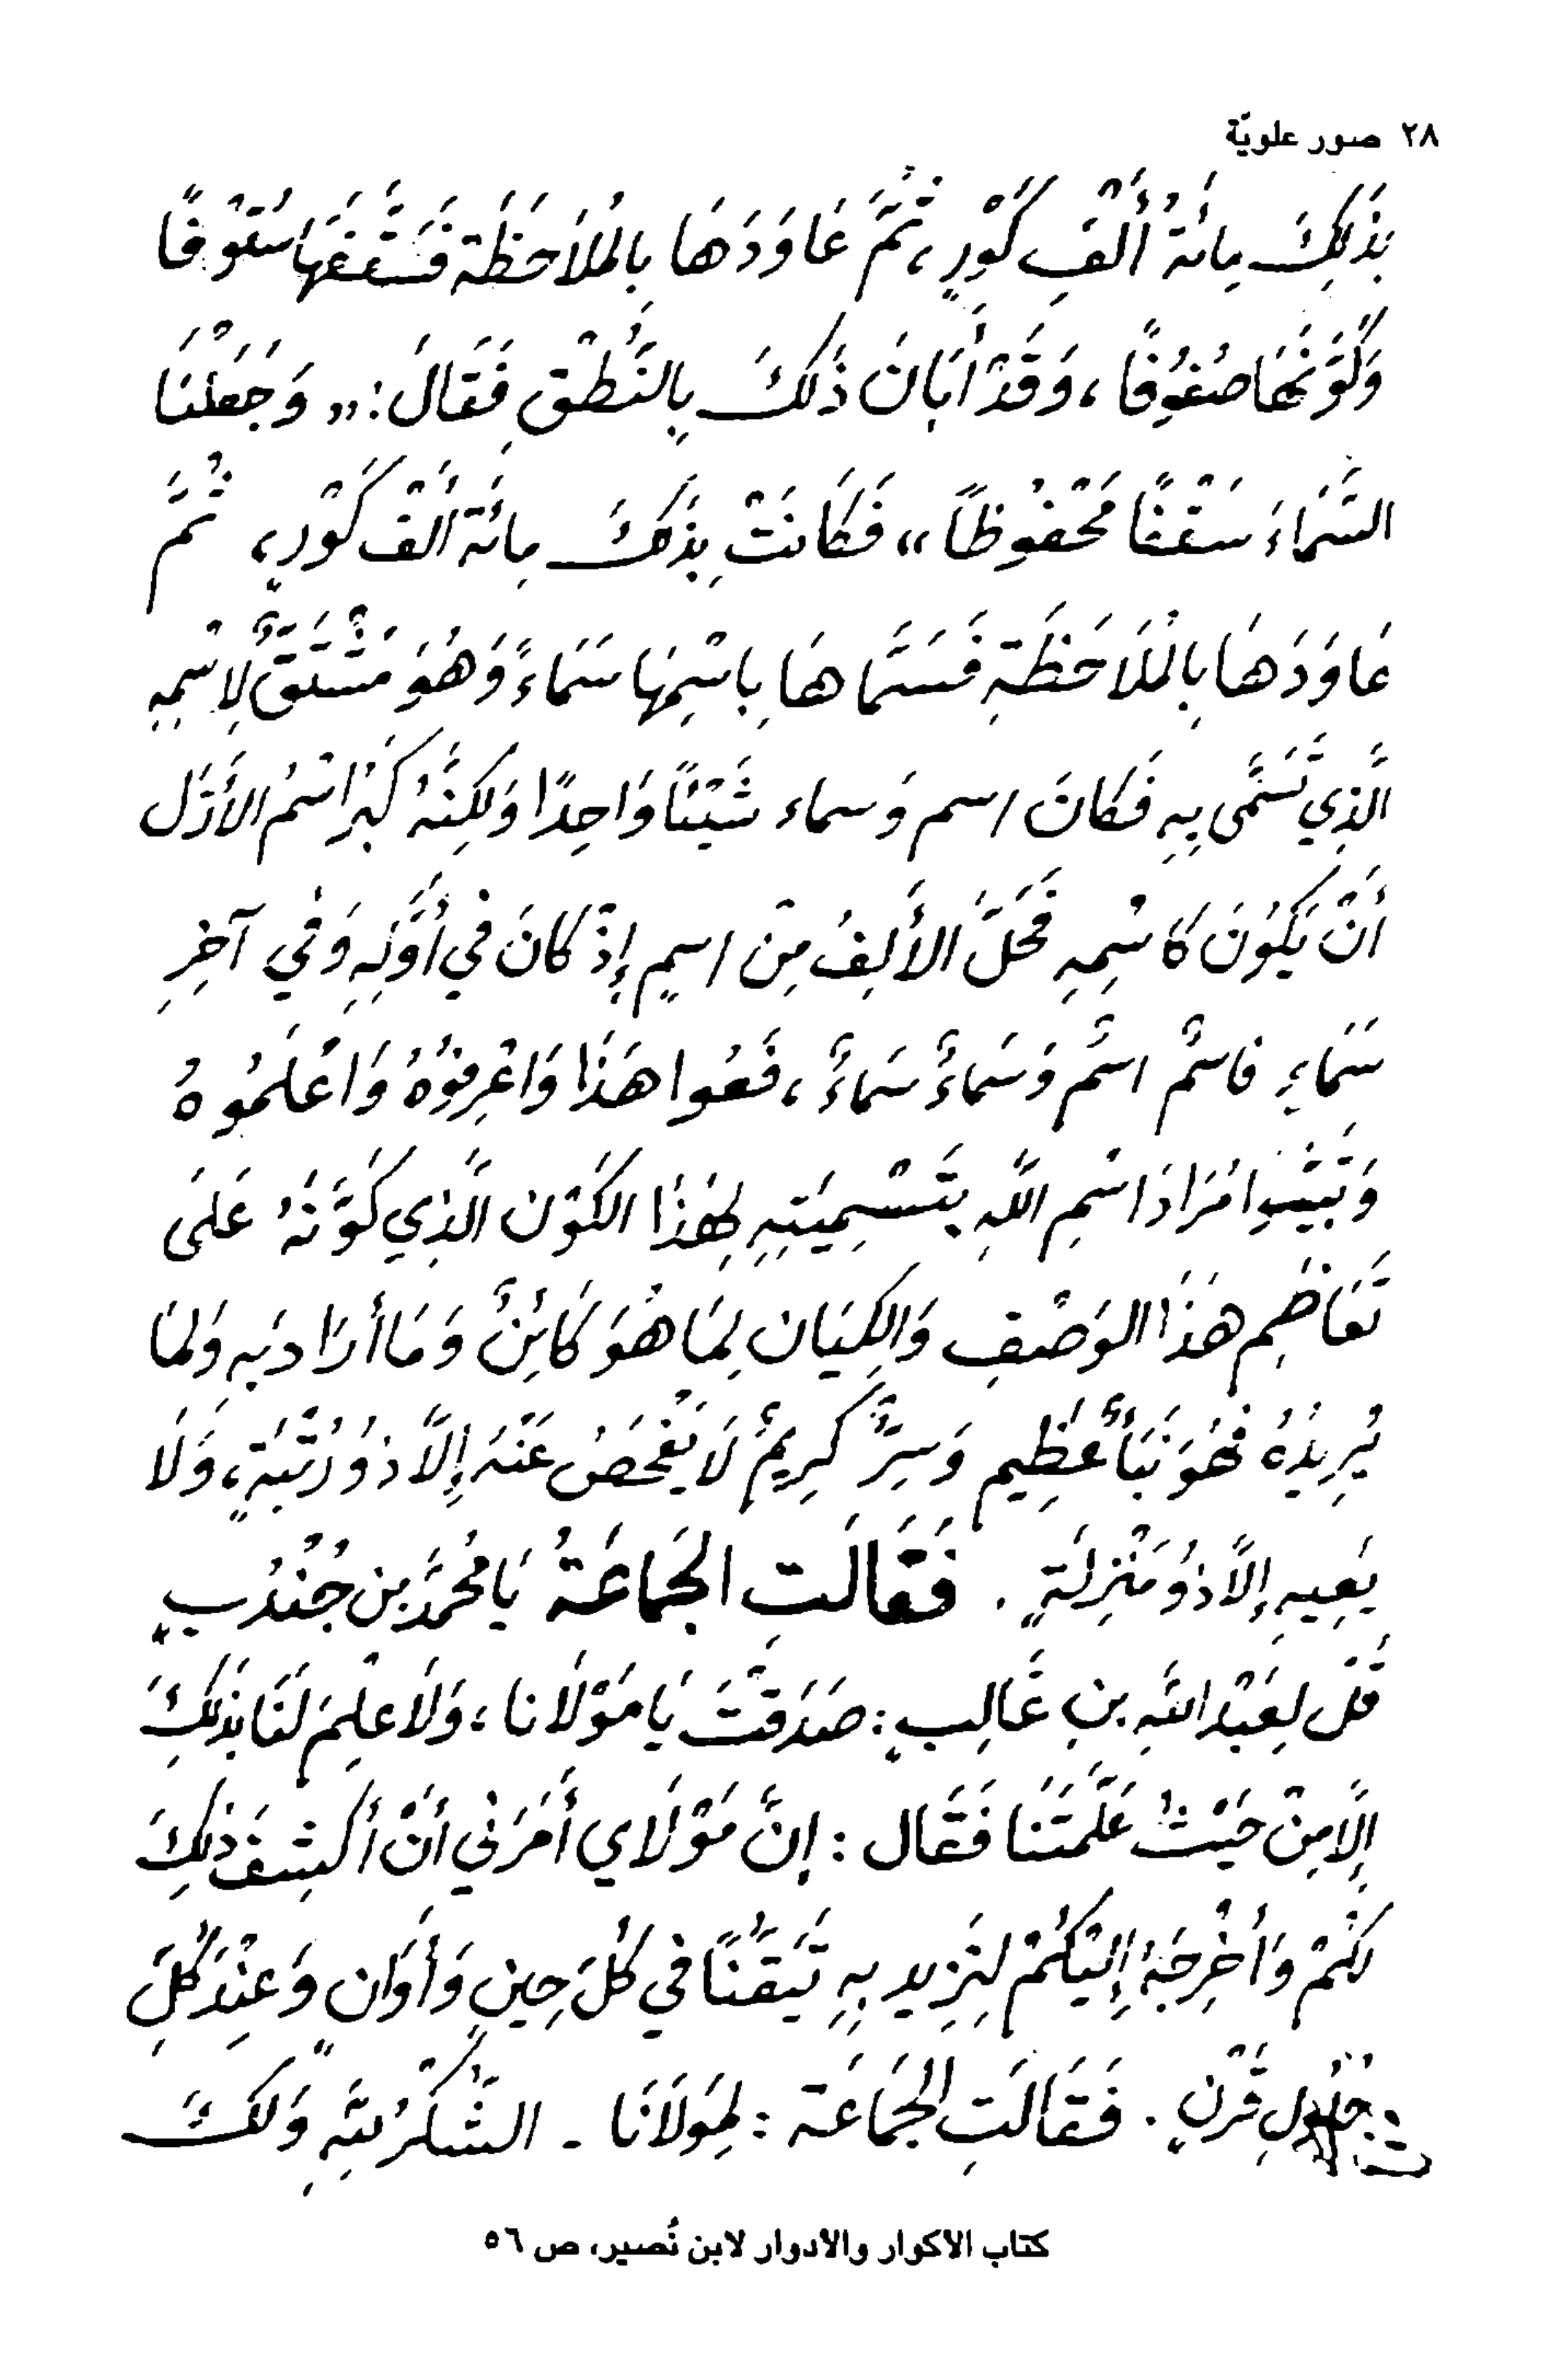 ٢٨ صور علويّة
بِذَلِكَ مِائَةُ أَلْفِ كَوْرٍ، ثُمَّ عَاوَدَهَا بِالمُلاَحَظَةِ فَسَقَّفَهَا سُقُوفًا
وَكَوَّنَهَا صُفُوفًا، وَقَدْ أَبَانَ ذَلكَ بِالنُطْقِ فَقَالَ: «وَجَعَلْنَا
السَّمَاءَ سَقْفًا مَحْفُوظًا» فَكَانَتْ بِذَلكَ مِائَةَ أَلْف كَوْرٍ، ثُمَّ
عَاوَدَهَا بِالمُلاَحَظَةِ فَسَمَّاهَا بِاسْمِهَا سَمَاءً وَهُوَ مُشْتَقٌّ لِاسْمِهِ
الَّذِي تَسَمَّى بِهِ فَكَانَ اسم وَسماء شَيْئاً وَاحِدًا وَلَكِنَّهُ اسْمُ الأَزَل
أَنْ يَكُونَ كَاسْمِهِ فَحَلَّ الأَلِفُ مِنْ اسمٍ إِذْ كَانَ فِي أَوَّلِهِ وَفي آخِرِ
سَمَاءٍ فاسْمٌ اسْمٌ وَسَمَاءٌ سَمَاءٌ، فَعُوا هَذَا وَاعْرِفُوْهُ وَاعْلَمُوهُ
وَتَبَيَّنُوا مُرَادَ اسْمِ اللَّهِ بِتَسْمِيَتِهِ لِهَذَا الكَوْنِ الَّذِي كَوَّنَهُ عَلَى
تَعَاظُمِ هَذَا الوَصْفِ وَالكِيَان لِمَا هُوَ كَائِنٌ وَمَا أَرَادَ بِهِ وَلمَا
يُرِيدُهُ فَهُوَ نَبَأٌ عَظِيم وَسِرٌّ كَرِيمٌ لَا يَفْحَصُ عَنْهُ إِلاَّ ذُو رُتْبَةٍ، وَلَا
يَعِيهِ إِلاَّ ذُو مَنْزِلَةٍ. فَقَالَتِ الجَمَاعَةُ يَا مُحَمَّدَ بن جُنْدُبٍ
قُلْ لِعَبْدِ اللَّهِ بنِ غَالِبٍ: صَدَقْتَ يَا مَوْلاَنا، وَلاَ عِلْمَ لَنَا بِذَلِكَ
إِلاَّ مِنْ حَيْثُ عَلَّمْتَنَا فَقَال: إِنَّ مَوْلَاي أَمَرَنِي أَنْ أَكْشِفَ ذَلِكَ
لَكُمْ وَأُخْرِجَهُ إِلَيْكُمْ لِنَزِيد بِهِ تَيَقُّنًا في كُلِّ حِينٍ وَأَوَانٍ وَعِنْدَ كُلِّ
حُلُولِ قَرْنٍ. فَقَالَتِ الجَمَاعَة: لِمَوْلاَنَا - الشُّكْرُ للَّهِ وَلَكَ
كتاب الاكوار والادوار لابن نُصير، ص ٥٦